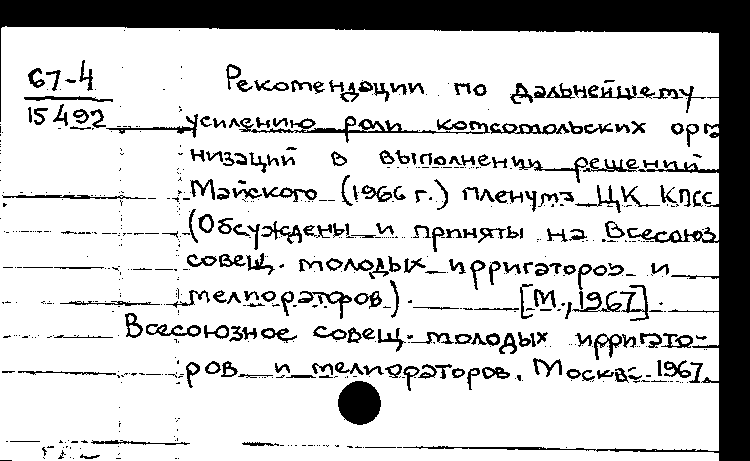 67-4
15492
Рекомендации по дальнейшему
усилению роли комсомольских орга
низаций в выполнении решений
Майского (1966 г.) Пленума ЦК КПСС
(Обсуждены и приняты на Всесоюз
совещ. молодых ирригаторов и
мелиораторов). [М., 1967].
Всесоюзное совещ. молодых иррига-
ров и мелиораторов. Москва. 1967.